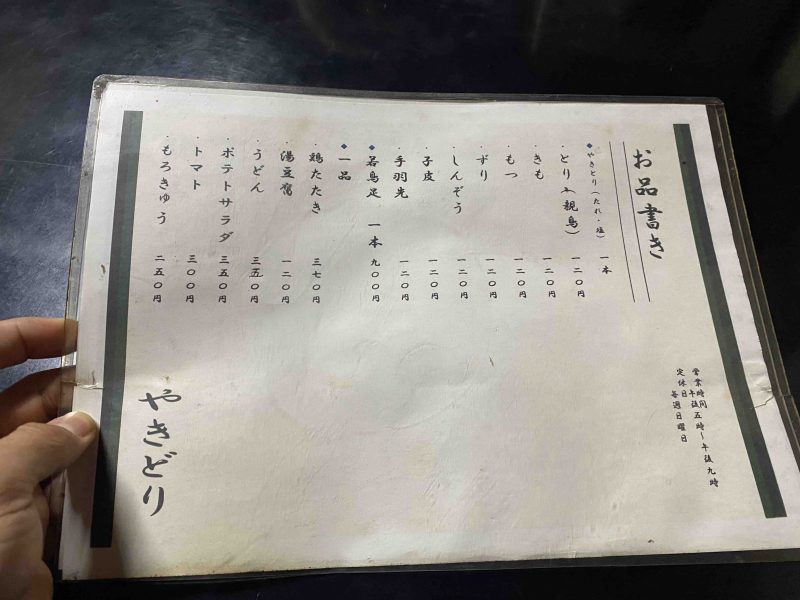 お品書き
営業時間 午後五時～午後九時
定休日 毎週日曜日
◆やきとり（たれ・塩） 一本
・とり（親鳥） 一二〇円
・きも 一二〇円
・もつ 一二〇円
・ずり 一二〇円
・しんぞう 一二〇円
・子皮 一二〇円
・手羽先 一二〇円
◆若鳥足 一本 九〇〇円
◆一品
・鶏たたき 三七〇円
・湯豆腐 一二〇円
・うどん 三五〇円
・ポテトサラダ 三五〇円
・トマト 三〇〇円
・もろきゅう 二五〇円
やきどり